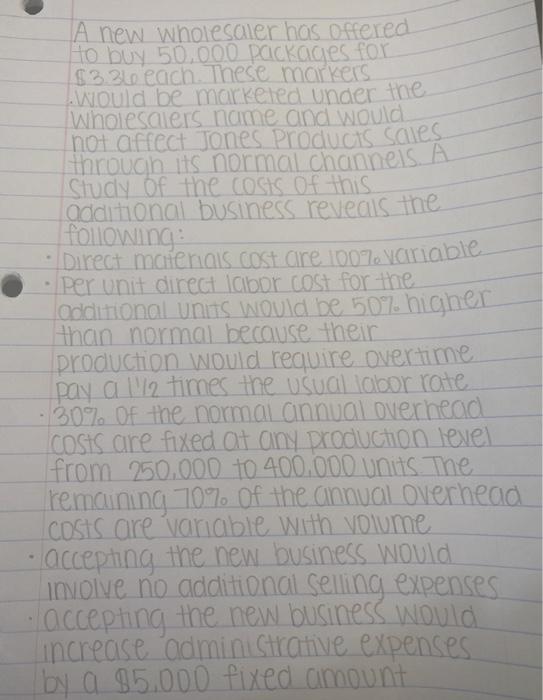 A new wholesaler has offered
to buy 50,000 packages for
$3.36 each. These markers
would be marketed under the
wholesalers name and would
not affect Jones Products sales
through its normal channels. A
study of the costs of this
additional business reveals the
following:
• Direct materials cost are 100% variable
• Per unit direct labor cost for the
additional units would be 50% higher
than normal because their
production would require overtime
pay a 1 1/2 times the usual labor rate
• 30% of the normal annual overhead
costs are fixed at any production level
from 250,000 to 400,000 units. The
remaining 70% of the annual overhead
costs are variable with volume
• accepting the new business would
involve no additional selling expenses
• accepting the new business would
increase administrative expenses
by a $5,000 fixed amount